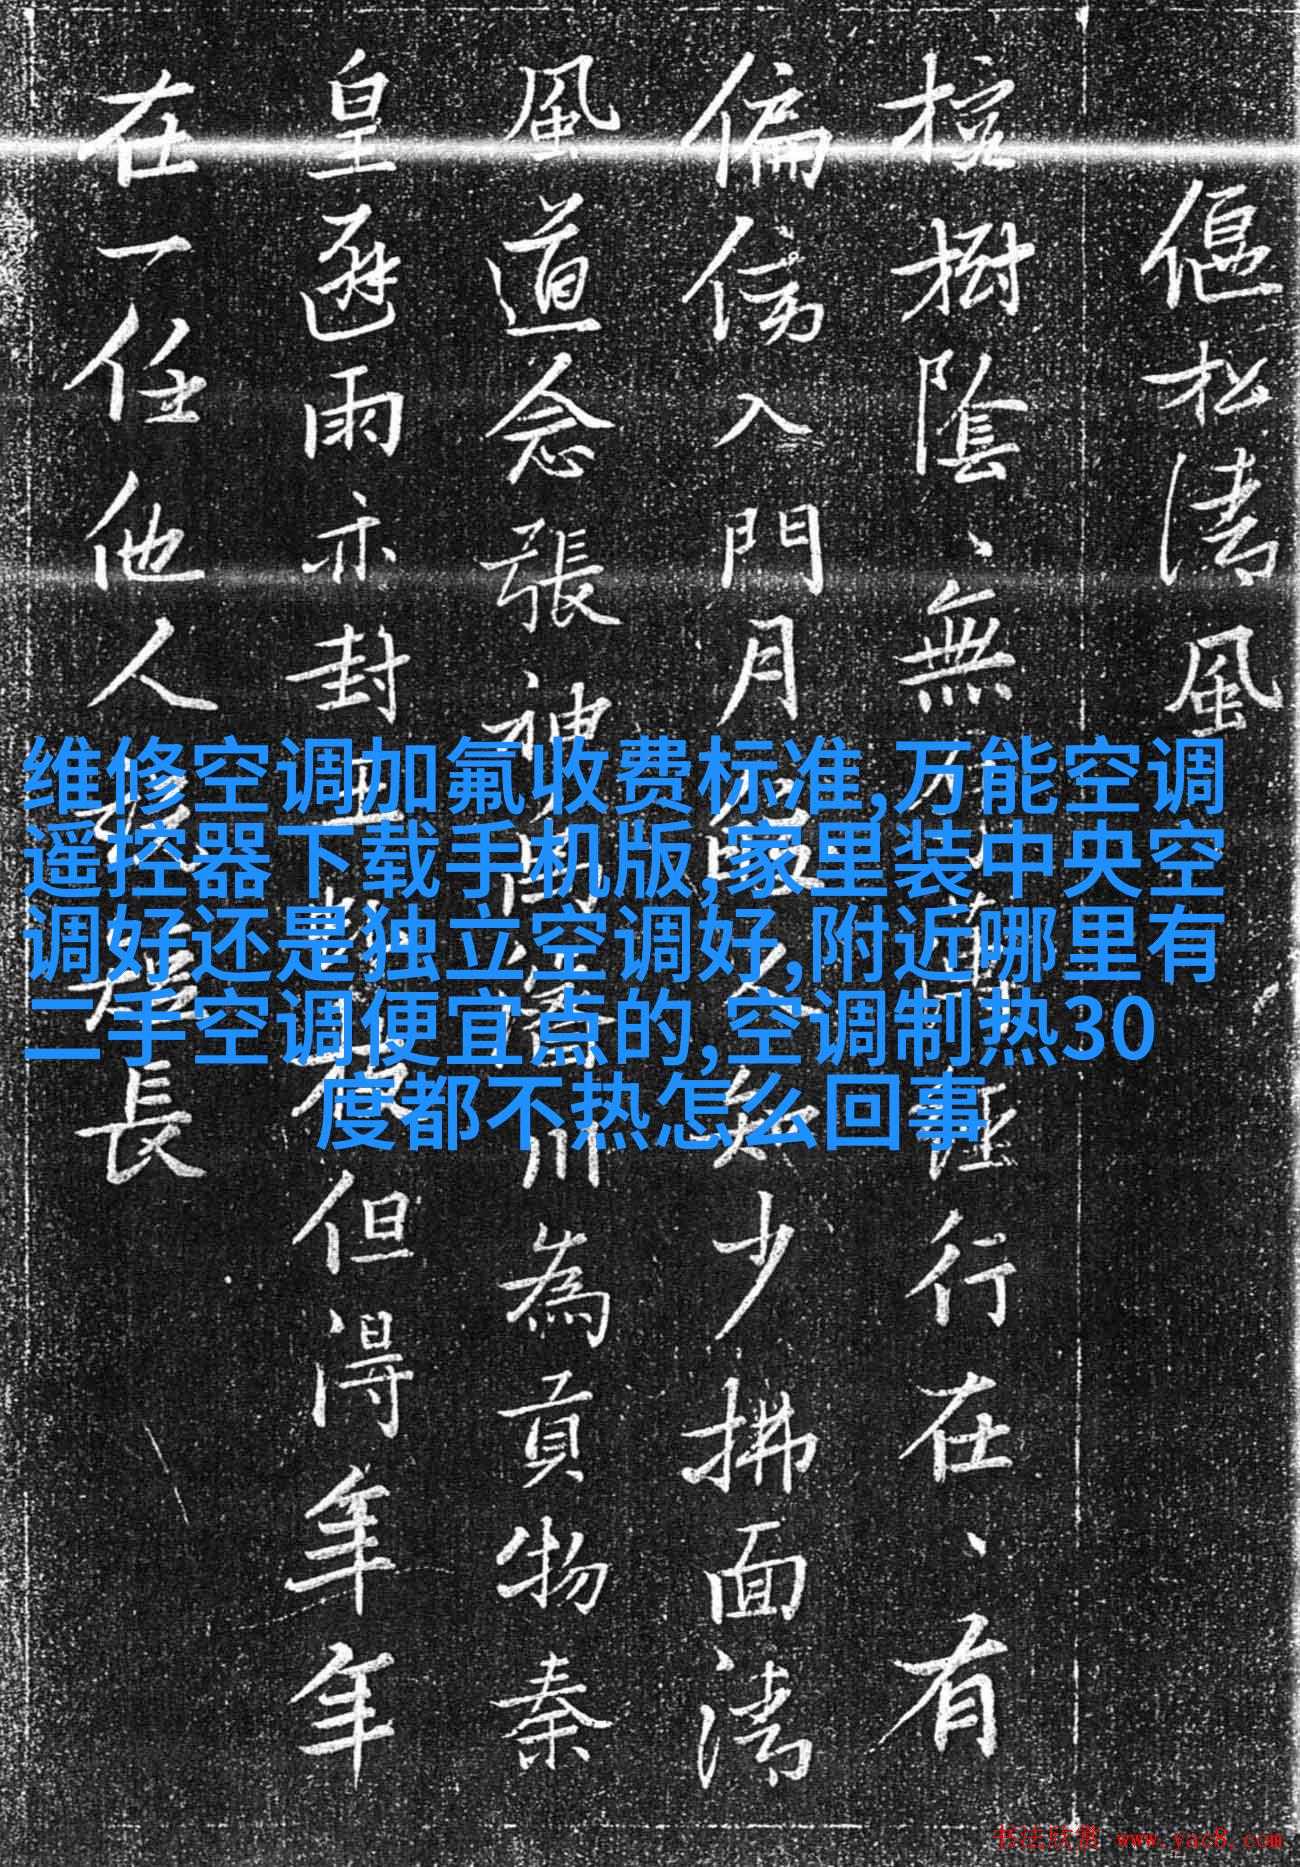 偃松清風
樹陰、無行在、有
偏傍入門月少拂面清
風道念張神川為貢物秦
皇避雨亦封但得年年
在一任他人長
维修空调加氟收费标准,万能空调
遥控器下载手机版,家里装中央空
调好还是独立空调好,附近哪里有
二手空调便宜点的,空调制热30
度都不热怎么回事
书法欣赏 www.yac8.com